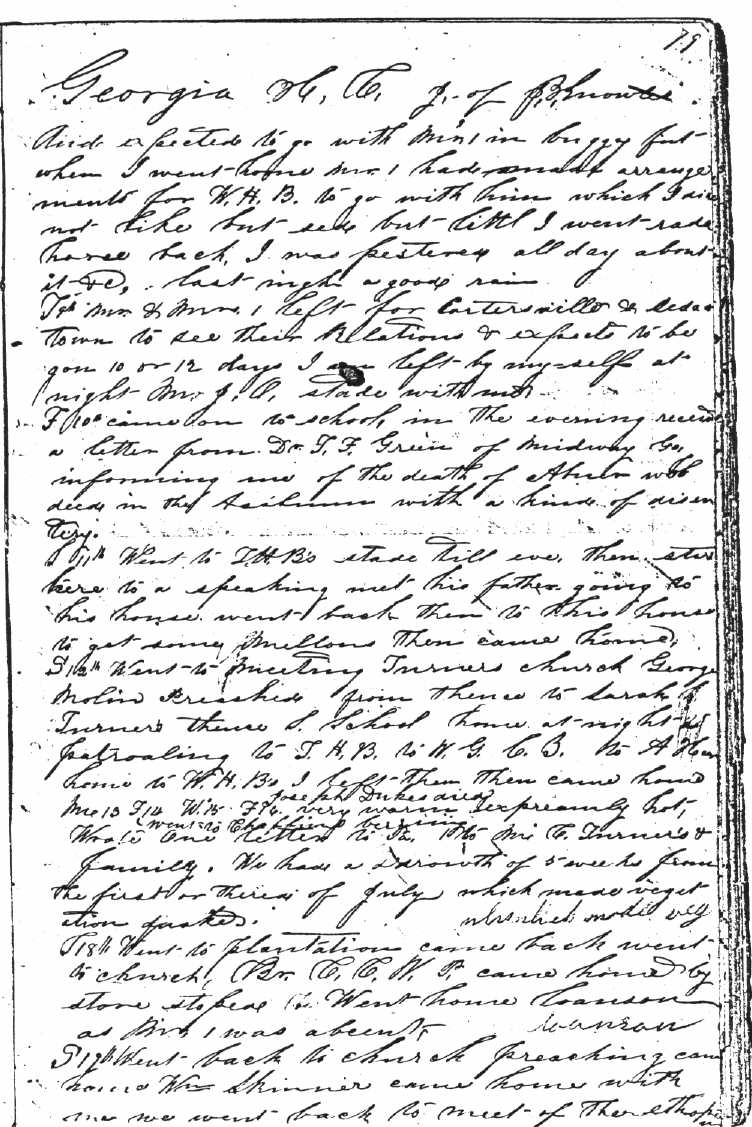 79
Georgia H. C. J. of J. Knowles
And expected to go with Mr 1 in buggy but
when I went home Mr. 1 had made arrange
ments for W. H. B. to go with him which I did
not like but sed but littl I went rade
horse back, I was pestered all day about
it &c, last night a good rain
Mr. & Mrs. 1 left for Cartersville & Ceda
town to see their Relations & expects to be
gon 10 or 12 days I left by my-self at
night Mr. J. C. stade with me
F 10th came on to school, in the evening recevd
a letter from Dr. T. F. Green of Midway Ga,
informing me of the death of who
died in the Asilum with a kind of disen
tery.
S 11th Went to T. H. B's stade till eve, then star
to a speaking met his father going to
his house went back then to his house
to get some Mellons then came home,
S 12th Went to Meeting Turners church George
Molin Preached from thence to Sarah
Turner's thence S. School home at night
patroaling to T. H. B. to W. G. C. B. to A
home to W. H. B's I left them then came home
Joseph Dukes died
Mo 13 T 14 W 15 very warm expreamly hot,
went to burying
Wrote One letter to Pa, 1 to Mr C. Turner's &
family. We had a drowth of 5 weeks from
the first or therd of July which made veget
ation parked. made veg
S 18th Went to plantation came back went
to church, Br. C. C. W. P. came home by
store stoped Went home
as Mr 1 was abcent,
S 19th Went back to church preaching cam
home Wm Skinner came home with
me we went back to meet of the